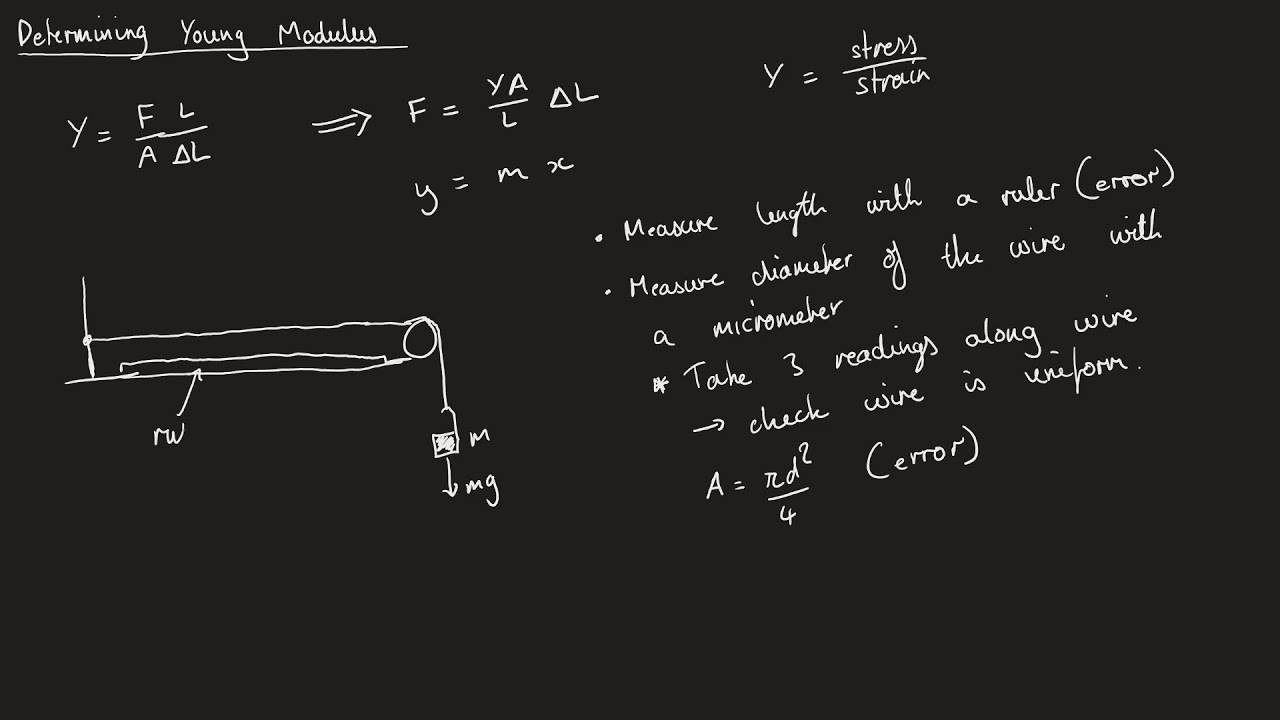 Determining Young Modulus
Y = F L / A ΔL ⟹ F = YA/L ΔL
y = m x
Y = stress / strain
• Measure length with a ruler (error)
• Measure diameter of the wire with
a micrometer
* Take 3 readings along wire
→ check wire is uniform.
A = πd²/4 (error)
m
mg